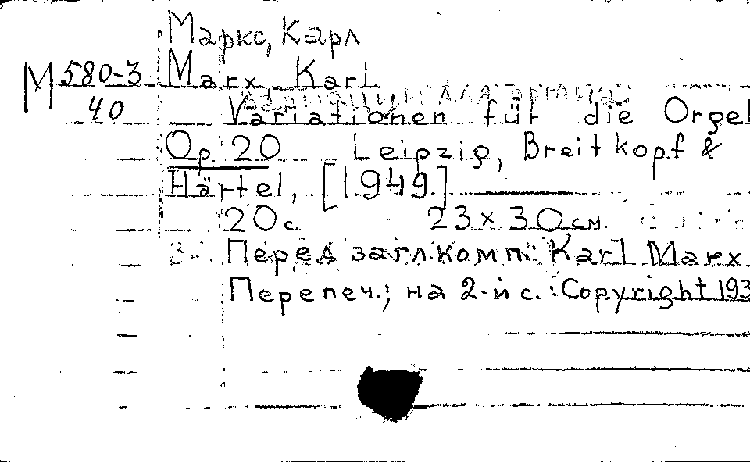 Маркс, Карл
М 580-3 Marx Karl
40 Вариации для органа
Variationen für die Orgel
Op. 20 Leipzig, Breitkopf &
Härtel, [1949.]
20 с. 23 х 30 см.
Перед загл. комп.: Karl Marx
Перепеч.; на 2-й с.: Copyright 193